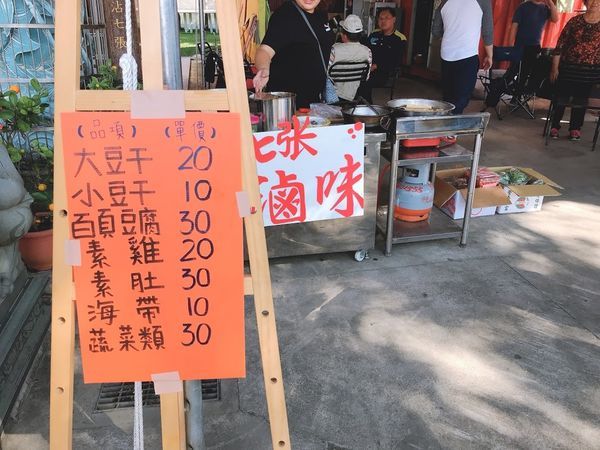 沽七張
(品項) (單價)
大豆干 20
小豆干 10
百頁豆腐 30
素雞 20
素肚 30
海帶 10
蔬菜類 30
七张
滷味